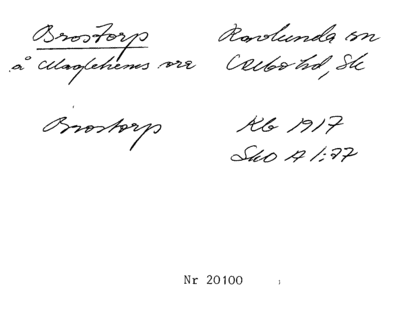 Brostorp Ravlunda sn
å Maglehems ora Albo hd, Sk
Brostorp Kb 1917
SkO A 1:77
Nr 20100